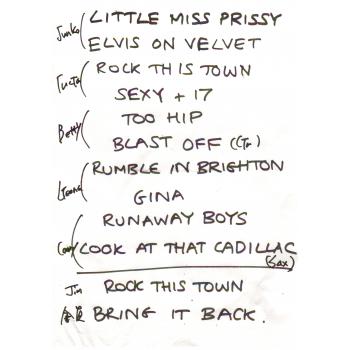 Junko LITTLE MISS PRISSY
ELVIS ON VELVET
ROCK THIS TOWN
SEXY + 17
Betty TOO HIP
BLAST OFF ((Tr)
RUMBLE IN BRIGHTON
GINA
RUNAWAY BOYS
LOOK AT THAT CADILLAC
(Sax)
Jim ROCK THIS TOWN
全員 BRING IT BACK.